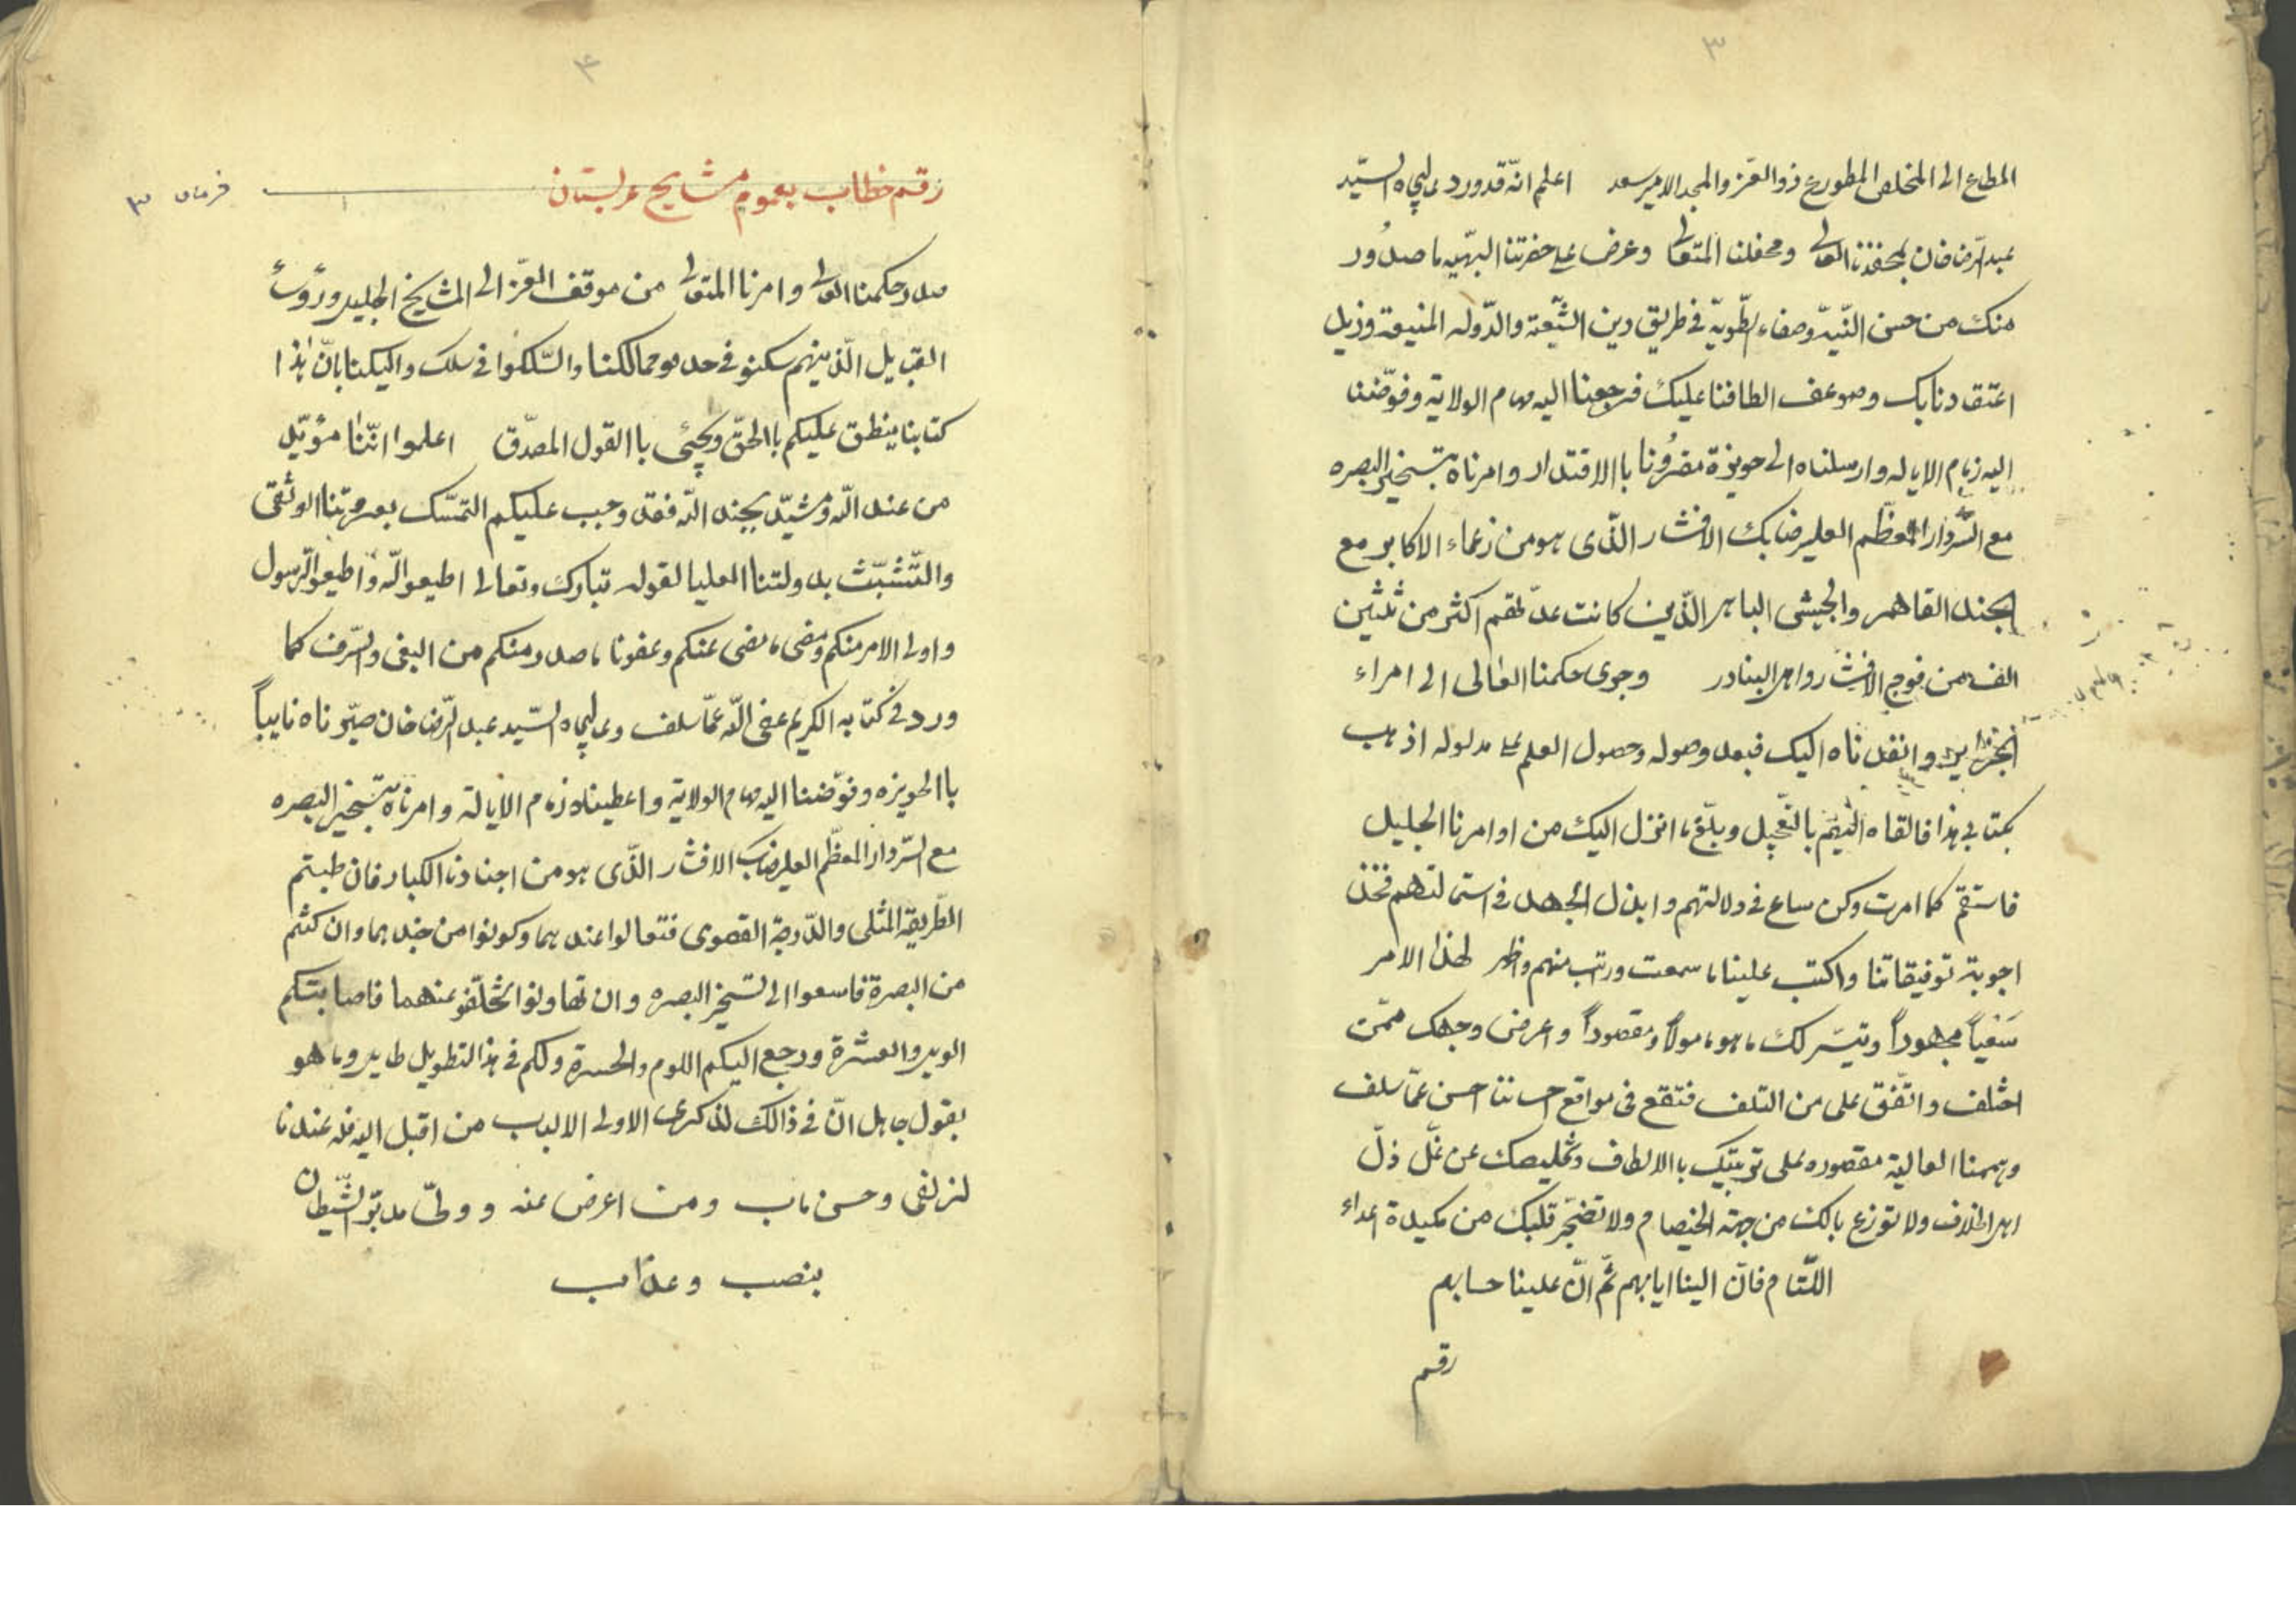 ۳
المطاع الی المخلص المطورع ذو العز والمجد الامیر سعد اعلم انّه قد ورد عالیجاه السیّد
عبد الرّضا خان لمحفدنا العالی ومحفلنا المتعالی وعرض علی حضرتنا البهّیه ما صدُور
منک من حسن النّیه وصفاء الطّویة فی طریق دین الشّیعة والدّوله المنیعة وزیل
اعتقادنا بک وضوعف الطافنا علیک فرجعنا الیه مهام الولایة وفوّضنا
الیه زمام الایاله وارسلناه الی حویزة مقرُونا باالاقتدار وامرناه بتسخیر البصره
مع السّردار المعظّم العلیرضا بک الافشار الذّی هو من زعماء الاکابر مع
الجند القاهر والجیش الباهر الذّین کانت عدّتهم اکثر من ثلثین
الف من فوج الافشار واهل البنادر وجری حکمنا العالی الی امراء
الجزایر وانفذناه الیک فبعد وصوله وحصول العلم علی مدلوله اذهب
بکتابی هذا فالقاه الیهم بالتّعجیل وبلّغ ما انزل الیک من اوامرنا الجلیل
فاستقم کما امرت وکن ساع فی دلالتهم وابذل الجهد فی استمالتهم فخذ
اجوبة توفیقاتنا واکتب علینا ما سمعت ورتب منهم واظهر لهذا الامر
سَعْیاً مجهوداً وتیسّر لک ما هو مامولاً ومقصوداً واعرض وجهک ممّن
اختلف واتّفق علی من التلف فتقع فی مواقع احساننا احسن عمّا سلف
وهممنا العالیة مقصوره علی تربیتک باالالطاف وتخلیصک عن غلّ ذلّ
اهل الخلاف ولا توزع بالک من جهة الخصام ولا تضجّر قلبک من مکیدة اعداء
اللئام فانّ الینا ایابهم ثمّ انّ علینا حسابهم
رقم
۴
رقم خطاب بعموم مشایخ عربستان
فرمان ۳
صدر حکمنا العالی وامرنا المتعالی من موقف العزّ الی المشایخ الجلیل ورؤساء
القبایل الّذینهم سکنو فی حدود ممالکنا والسّلکوا فی سلک والیکنا بانّ هذا
کتابنا ینطق علیکم باالحقّ ویجیٔ باالقول المصدّق اعلموا انّنا مؤیّد
من عند اللّه ومشیّد بجند اللّه فقد وجب علیکم التمسّک بعروتنا الوثقی
والتّشبّث بدولتنا العلیا لقوله تبارک وتعالی اطیعو اللّه واطیعو الرّسول
واولی الامر منکم ومضی ما مضی عنکم وعفونا ما صدر منکم من البغی والسّرف کما
ورد فی کتابه الکریم عفی اللّه عمّا سلف وعالیجاه السّید عبد الرّضا خان صیّرناه نایباً
باالحویزه وفوّضنا الیه مهام الولایة واعطیناه زمام الایالة وامرناه بتسخیر البصره
مع السّردار المعظّم العلیرضا بک الافشار الذّی هو من اجنادنا الکبار فان طبتم
الطّریقة المثلی والدّرجة القصوی فتعالوا عندهما وکونوا من جندهما وان کنتم
من البصرة فاسعوا الی تسخیر البصره وان تهاونوا تخلّفو عنهما فاصابتکم
الویل والعسرة ورجع الیکم اللوم والحسرة ولکم فی هذا التطویل طایل وما هو
بقول جاهل انّ فی ذالک لذکری الاولی الالباب من اقبل الیه فله عندنا
لزلفی وحسن ماب ومن اعرض عنه وولّی مدبّر الشّیطان
بنصب وعذاب